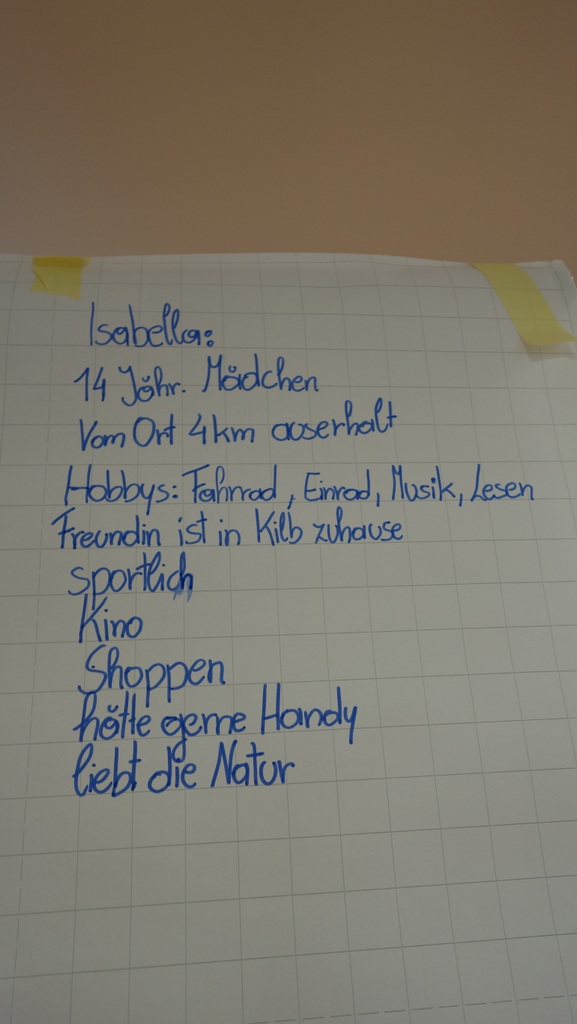 Isabella:
14 Jähr. Mädchen
Vom Ort 4km auserhalt
Hobbys: Fahrrad, Einrad, Musik, Lesen
Freundin ist in Kilb zuhause
sportlich
Kino
Shoppen
hätte gerne Handy
liebt die Natur